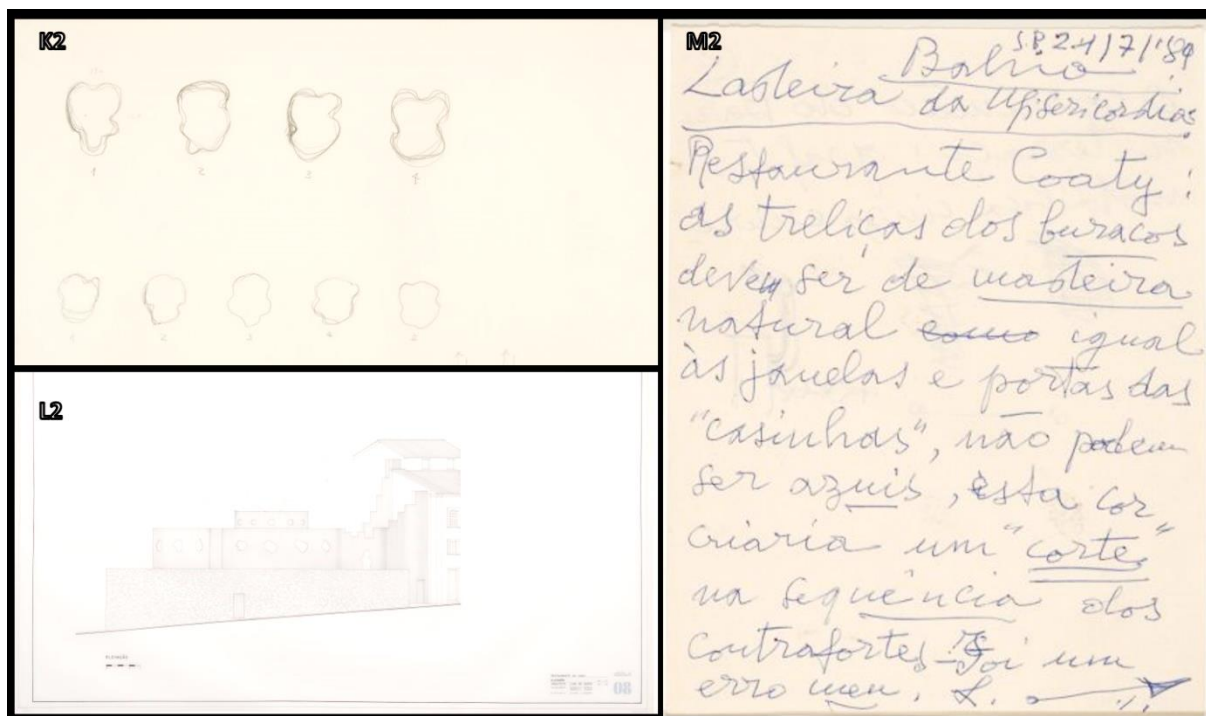 K2
1 2 3 4
1 2 3 4 5
L2
ELEVAÇÃO
08
M2
S.P. 21/7/'89
Bahia
Ladeira da Misericordia:
Restaurante Coaty:
as treliças dos buracos
devem ser de madeira
natural como igual
às janelas e portas das
"casinhas", não podem
ser azuis, esta cor
criaria um "corte"
na sequência dos
contrafortes - Foi um
erro meu. L.